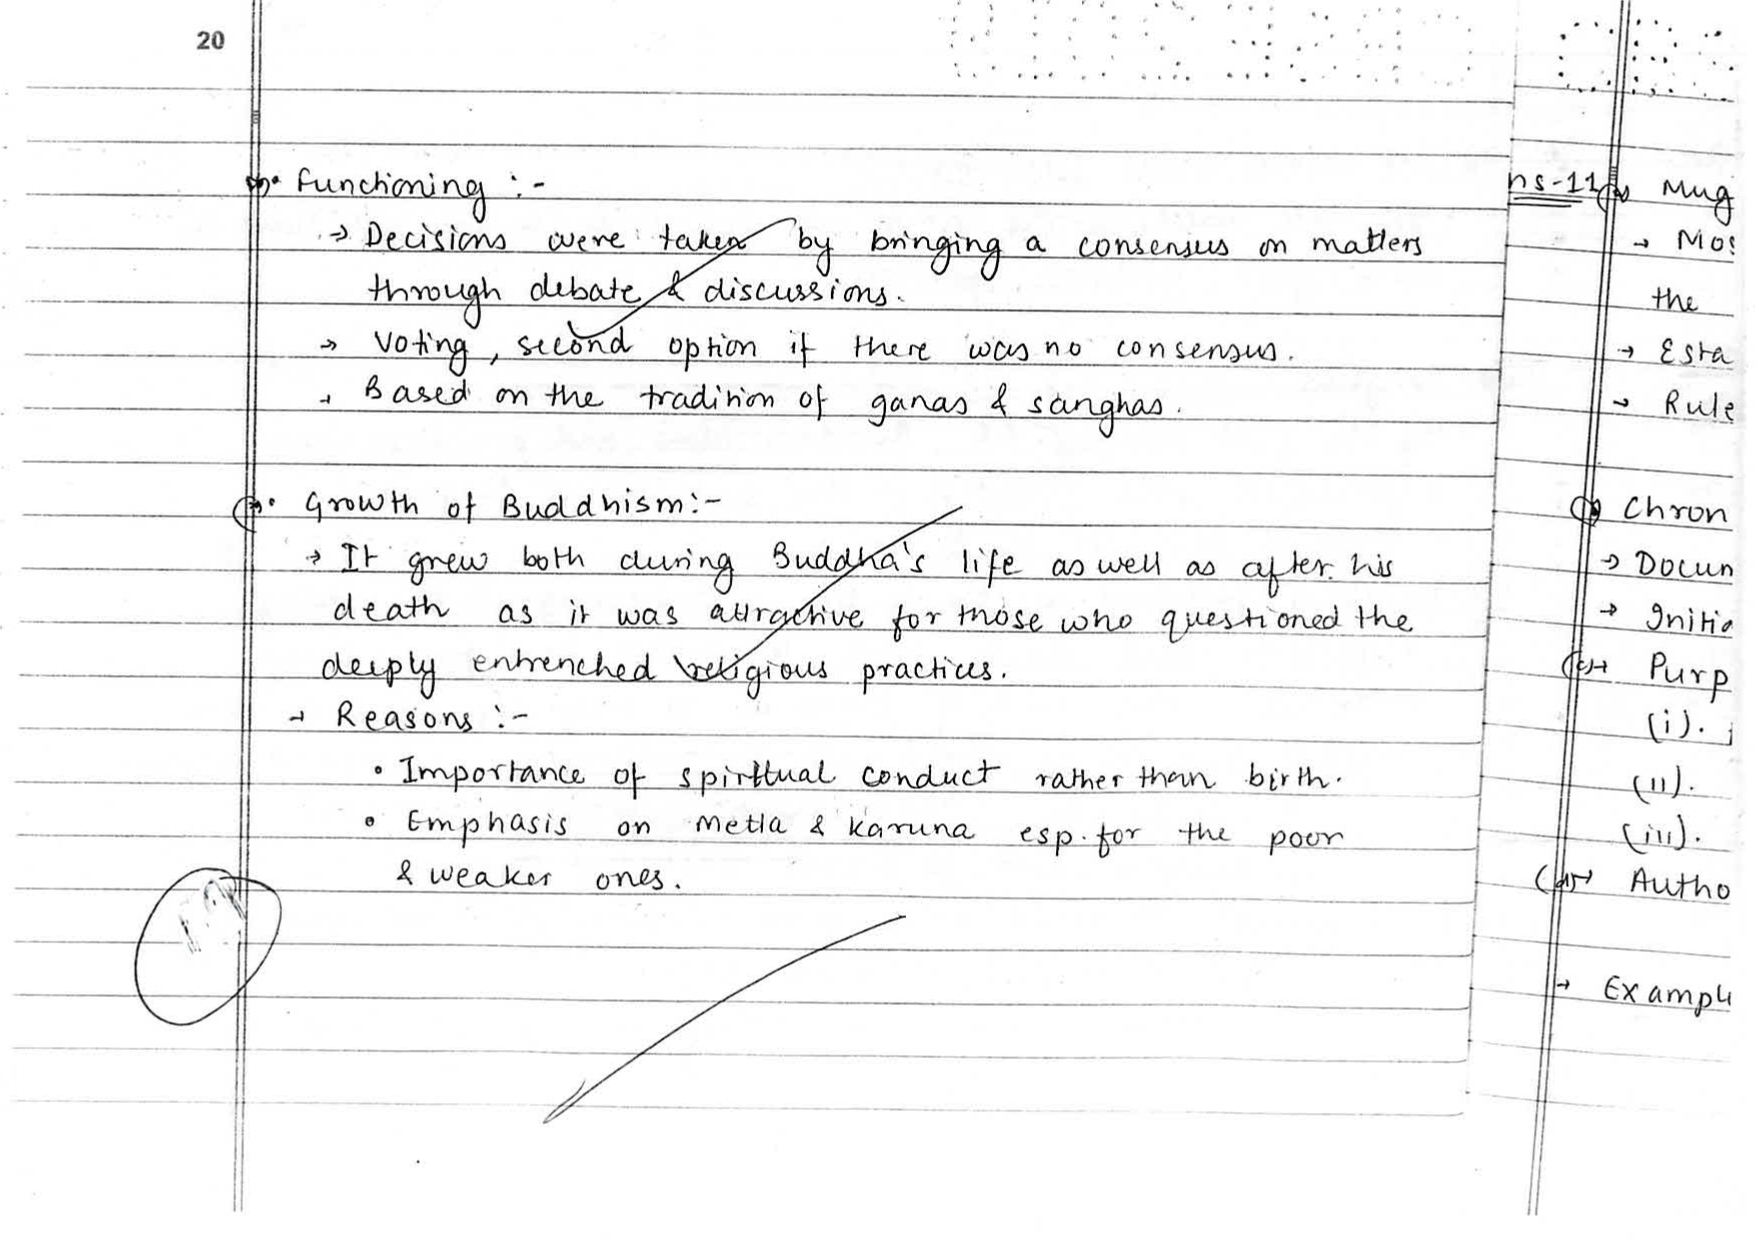 20
• Functioning :-
→ Decisions were taken by bringing a consensus on matters
through debate & discussions.
→ Voting, second option if there was no consensus.
→ Based on the tradition of ganas & sanghas.
• Growth of Buddhism:-
→ It grew both during Buddha's life as well as after his
death as it was attractive for those who questioned the
deeply entrenched religious practices.
→ Reasons :-
• Importance of spiritual conduct rather than birth.
• Emphasis on metta & karuna esp. for the poor
& weaker ones.
ns-11
Mug
→ Mos
the
→ Esta
→ Rule
Chron
→ Docum
→ Initia
→ Purp
(i).
(ii).
(iii).
→ Autho
→ Example